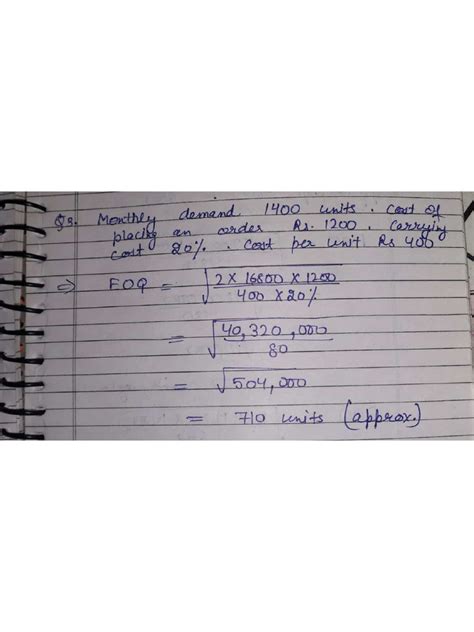 Q8. Monthly demand 1400 units. Cost of
placing an order Rs. 1200. Carrying
cost 20%. Cost per unit Rs 400
⇒ EOQ = √2 × 16800 × 1200
400 × 20%
= √40,320,000
80
= √504,000
= 710 units (approx.)